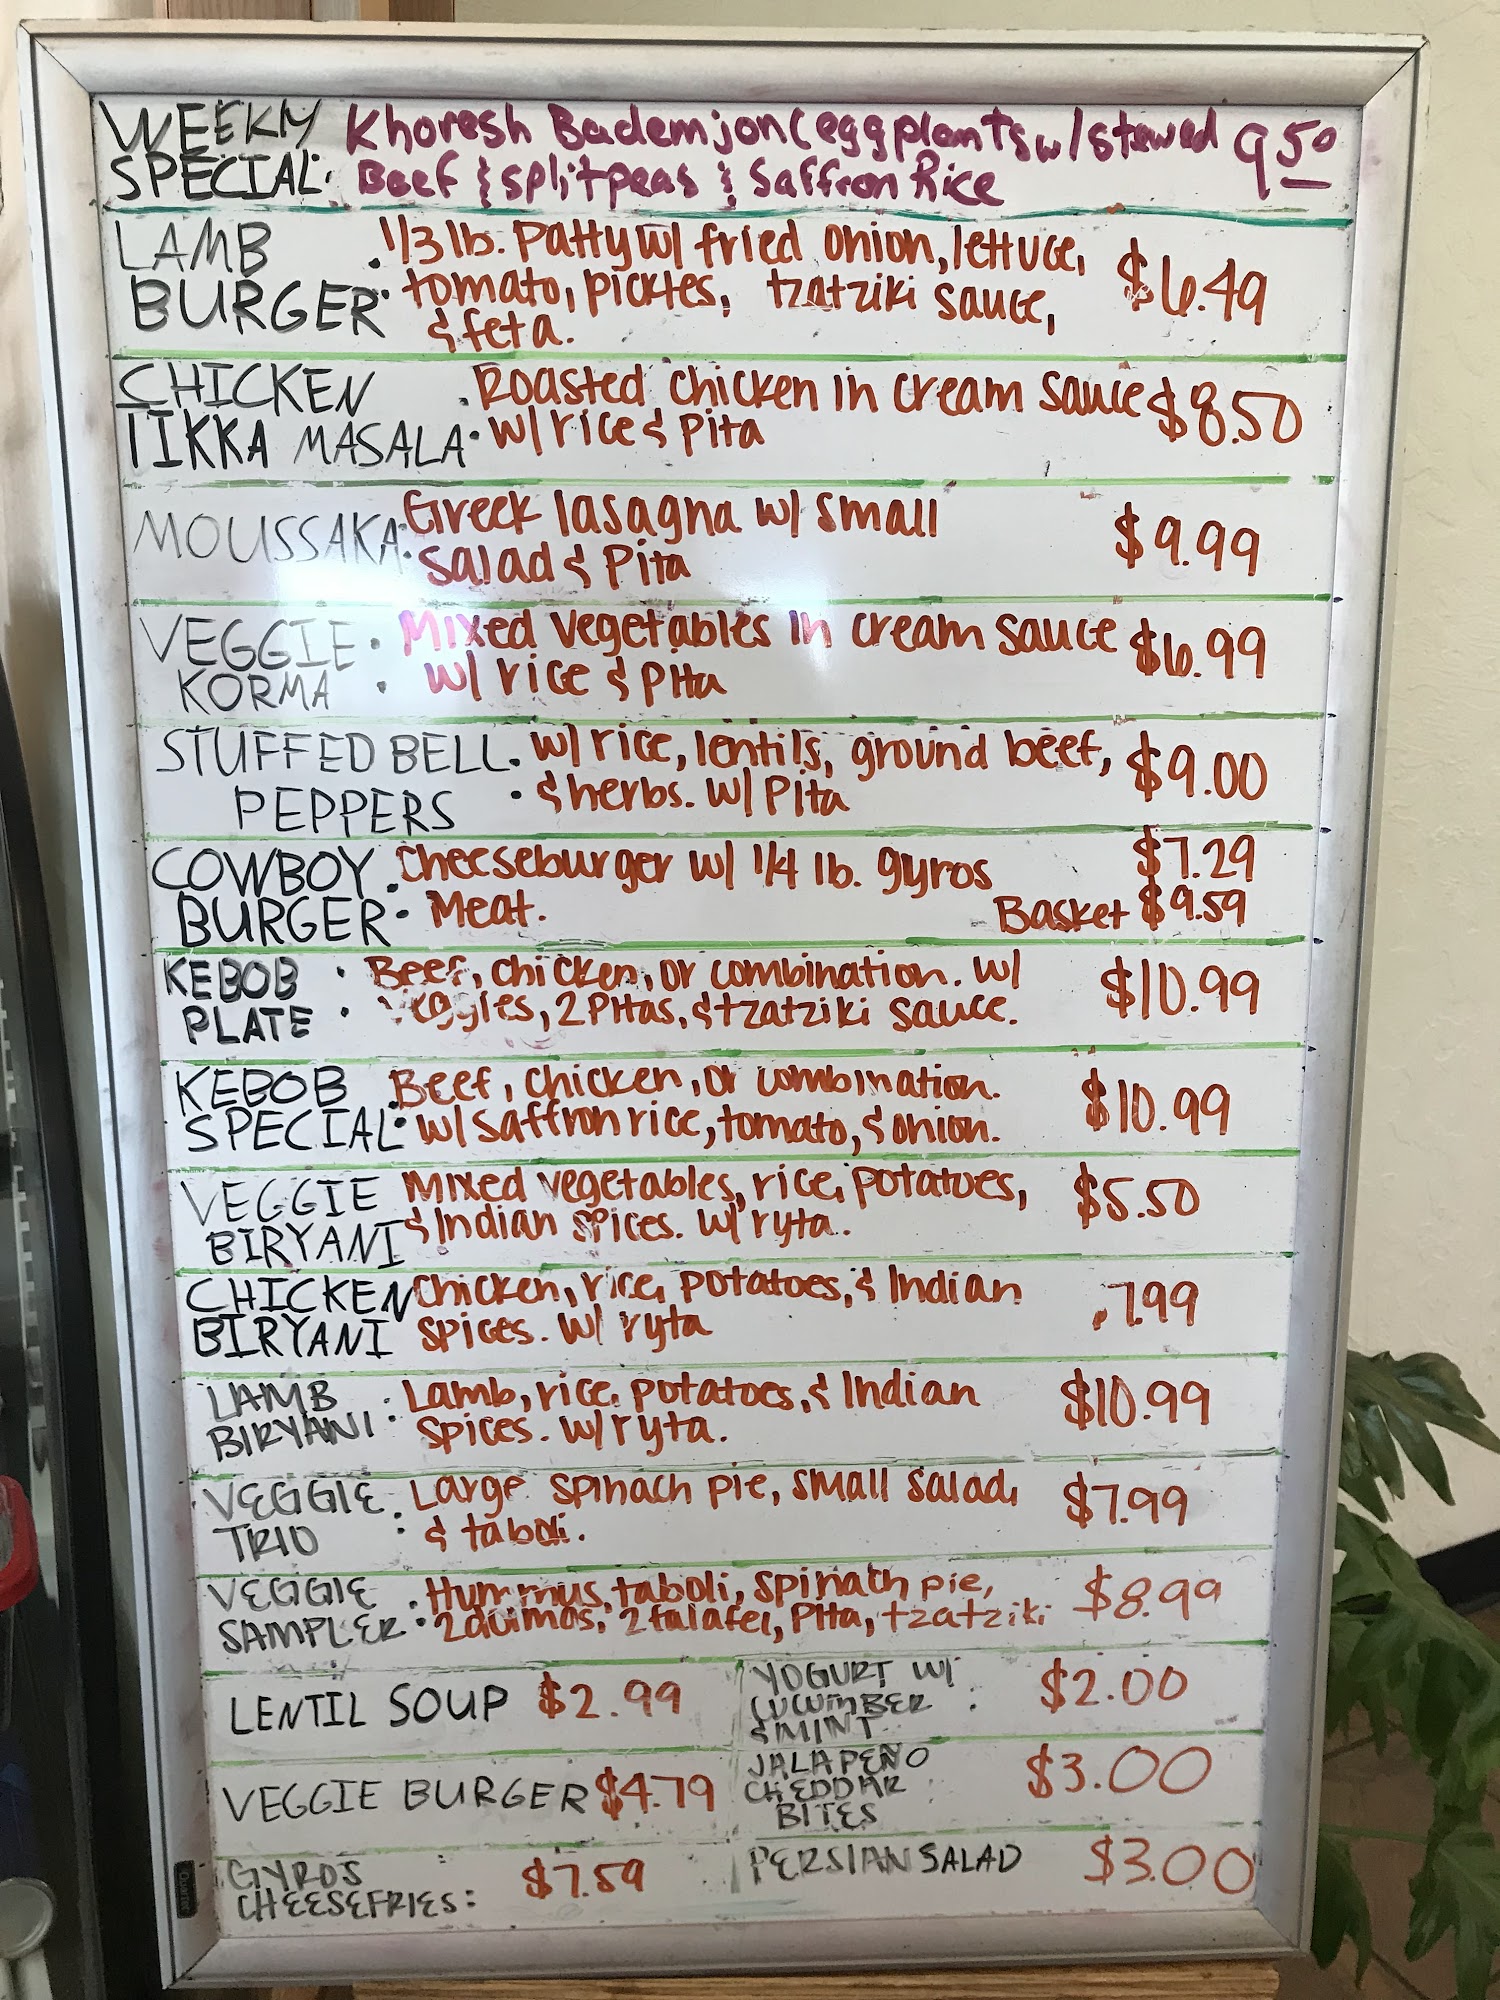 WEEKLY Khoresh Bademjon (eggplants w/ stewed 9.50
SPECIAL: Beef & splitpeas & Saffron Rice
LAMB : 1/3 lb. Patty w/ fried onion, lettuce, $6.49
BURGER tomato, pickles, tzatziki sauce,
& feta.
CHICKEN : Roasted chicken in cream sauce $8.50
TIKKA MASALA w/ rice & Pita
MOUSSAKA: Greek lasagna w/ small $9.99
Salad & Pita
VEGGIE : Mixed vegetables in cream sauce $6.99
KORMA w/ rice & Pita
STUFFED BELL : w/ rice, lentils, ground beef, $9.00
PEPPERS & herbs. w/ Pita
COWBOY : Cheeseburger w/ 1/4 lb. gyros $7.29
BURGER Meat. Basket $9.59
KEBOB : Beef, chicken, or combination. w/ $10.99
PLATE veggies, 2 Pitas, & tzatziki sauce.
KEBOB Beef, chicken, or combination. $10.99
SPECIAL: w/ saffron rice, tomato, & onion.
VEGGIE Mixed vegetables, rice, potatoes, $5.50
BIRYANI & Indian spices. w/ ryta.
CHICKEN Chicken, rice, potatoes, & Indian 7.99
BIRYANI spices. w/ ryta
LAMB : Lamb, rice, potatoes, & Indian $10.99
BIRYANI spices. w/ ryta.
VEGGIE : Large spinach pie, small salad, $7.99
TRIO & taboli.
VEGGIE : Hummus, taboli, spinach pie, $8.99
SAMPLER 2 dolmas, 2 falafel, Pita, tzatziki
LENTIL SOUP $2.99
YOGURT W/ : $2.00
CUCUMBER
& MINT
VEGGIE BURGER $4.79
JALAPEÑO : $3.00
CHEDDAR
BITES
GYROS $7.59
CHEESEFRIES:
PERSIAN SALAD $3.00
Quartet